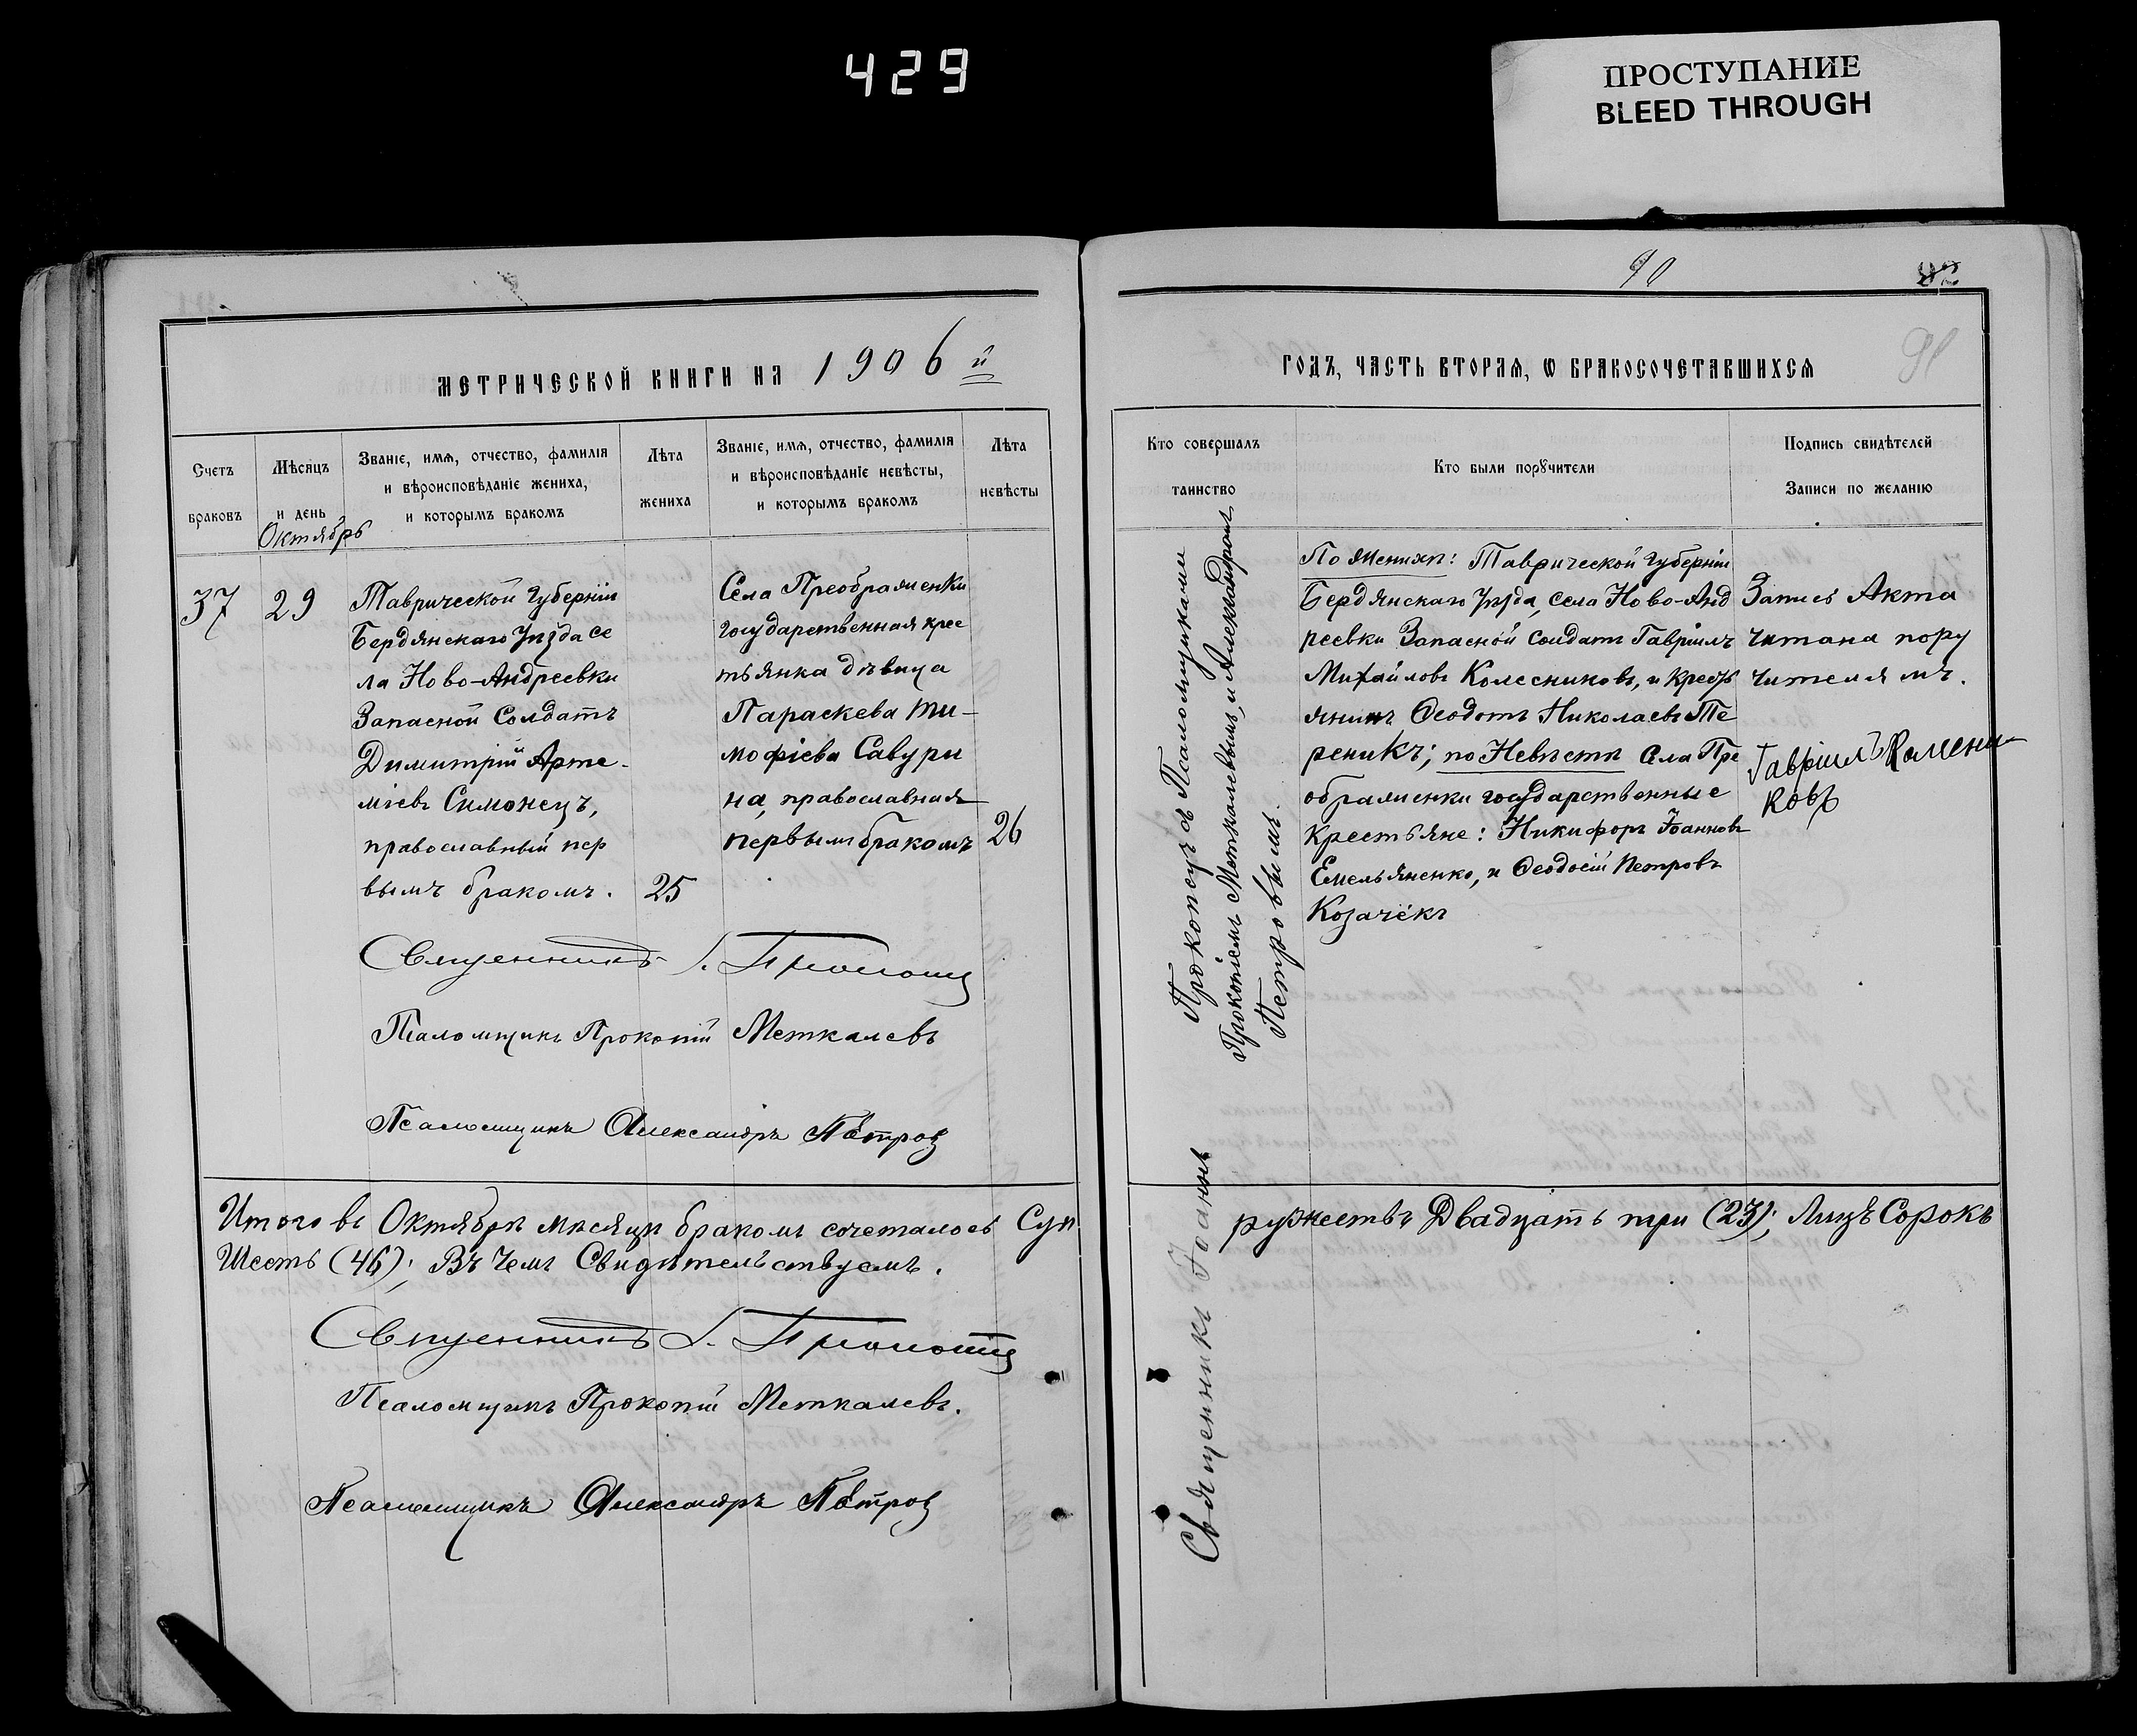 429
ПРОСТУПАНИЕ
BLEED THROUGH
МЕТРИЧЕСКОЙ КНИГИ НА 1906 й
Счетъ
браковъ
Мѣсяцъ
и день
Званіе, имя, отчество, фамилія
и вѣроисповѣданіе жениха,
и которымъ бракомъ
Лѣта
жениха
Званіе, имя, отчество, фамилія
и вѣроисповѣданіе невѣсты,
и которымъ бракомъ
Лѣта
невѣсты
Октябрь
37
29
Таврической Губерніи
Бердянскаго Уѣзда се
ла Ново-Андреевки
Запасной Солдатъ
Димитрій Арте-
міевъ Симонецъ,
православный пер
вымъ бракомъ.
25
Села Преображенки
государственная крес
тьянка дѣвица
Параскева Ти-
мофіева Савури
на, православная
первымъ бракомъ
26
Священникъ І.
Псаломщикъ Прокопій Меткалевъ
Псаломщикъ Александръ Петровъ
Итого въ Октябрѣ мѣсяцѣ бракомъ сочеталось Суп
Шесть (46); Въ чемъ Свидѣтельствуемъ.
Священникъ І.
Псаломщикъ Прокопій Меткалевъ.
Псаломщикъ Александръ Петровъ
90
91
ГОДЪ, ЧАСТЬ ВТОРАЯ, Ѡ БРАКОСОЧЕТАВШИХСЯ
Кто совершалъ
таинство
Кто были порꙋчители
Подпись свидѣтелей
Записи по желанію
Священникъ Іоаннъ Прокопецъ съ Псаломщиками
Прокопіемъ Меткалевымъ, и Александромъ
Петровымъ.
По Женихѣ: Таврической Губерніи
Бердянскаго Уѣзда, села Ново-Анд
реевки Запасной Солдатъ Гавріилъ
Михайловъ Колесниковъ, и Кресть
янинъ Ѳеодотъ Николаевъ Те
реникъ; по Невѣстѣ Села Пре
ображенки государственные
Крестьяне: Никифоръ Іоанновъ
Емельяненко, и Ѳеодосій Петровъ
Козачекъ
Запись Акта
читана пору
чителямъ.
Гавріилъ
ковъ
ружествъ Двадцать три (23); Лицъ Сорокъ